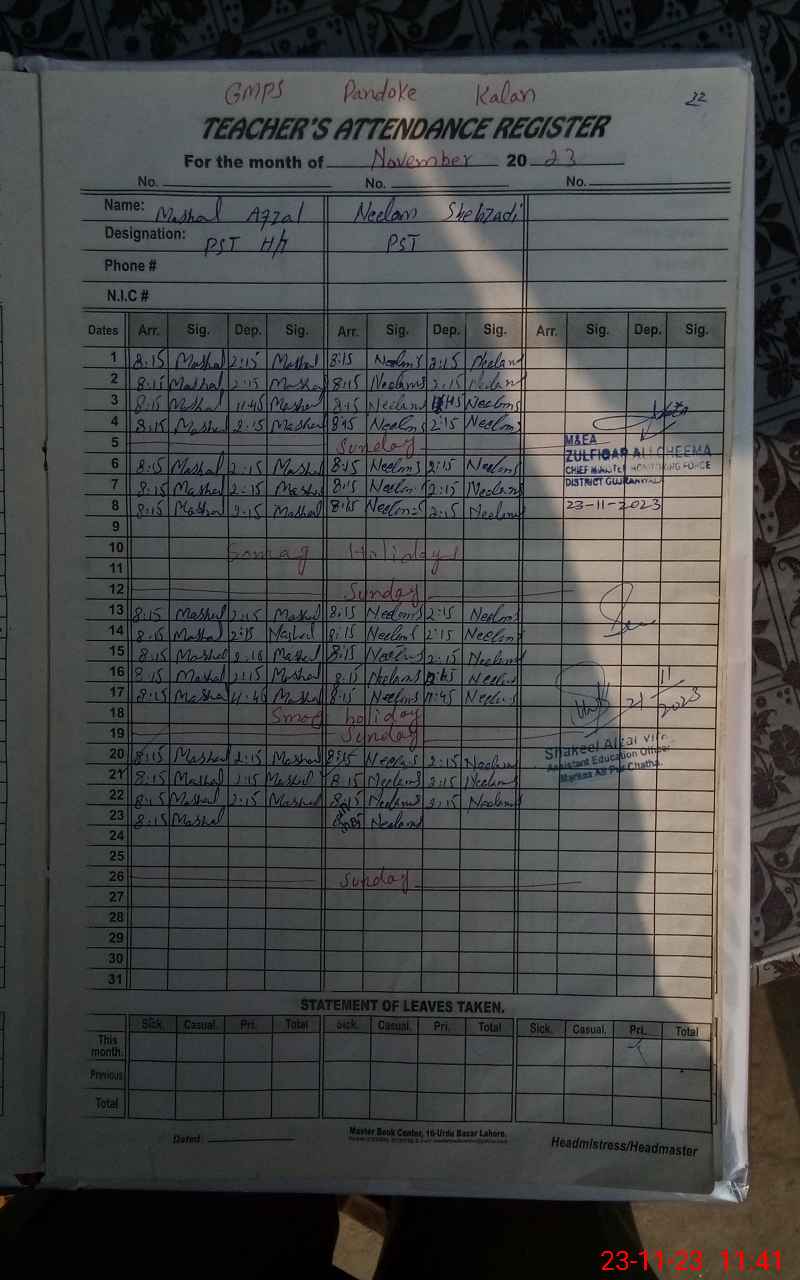 GMPS Pandoke Kalan
22
TEACHER'S ATTENDANCE REGISTER
For the month of November 20 23
No. No. No.
Name: Mashal Afzal Neelam Shehzadi
Designation: PST H/t PST
Phone #
N.I.C #
Dates Arr. Sig. Dep. Sig. Arr. Sig. Dep. Sig. Arr. Sig. Dep. Sig.
1 8:15 Mashal 2:15 Mashal 8:15 Neelam 2:15 Neelam
2 8:15 Mashal 2:15 Mashal 8:15 Neelam 2:15 Neelam
3 8:15 Mashal 11:45 Mashal 8:15 Neelam 11:45 Neelam
4 8:15 Mashal 2:15 Mashal 8:15 Neelam 2:15 Neelam
5 Sunday
M&EA
ZULFIQAR ALI CHEEMA
6 8:15 Mashal 2:15 Mashal 8:15 Neelam 2:15 Neelam
CHIEF MINISTER MONITORING FORCE
7 8:15 Mashal 2:15 Mashal 8:15 Neelam 2:15 Neelam
DISTRICT GUJRANWALA
8 8:15 Mashal 2:15 Mashal 8:15 Neelam 2:15 Neelam
23-11-2023
9
10 Smog Holidays
11
12 Sunday
13 8:15 Mashal 2:15 Mashal 8:15 Neelam 2:15 Neelam
14 8:15 Mashal 2:15 Mashal 8:15 Neelam 2:15 Neelam
15 8:15 Mashal 2:15 Mashal 8:15 Neelam 2:15 Neelam
16 8:15 Mashal 2:15 Mashal 8:15 Neelam Neelam
17 8:15 Mashal 11:45 Mashal 8:15 Neelam 11:45 Neelam
21/11/2023
18 Smog holiday
19 Sunday
Shakeel Afzal
20 8:15 Mashal 2:15 Mashal 8:15 Neelam 2:15 Neelam
Assistant Education Officer
21 8:15 Mashal 2:15 Mashal 8:15 Neelam 2:15 Neelam
Markaz Ali Pur Chatha.
22 8:15 Mashal 2:15 Mashal 8:15 Neelam 2:15 Neelam
23 8:15 Mashal Neelam
24
25
26 Sunday
27
28
29
30
31
STATEMENT OF LEAVES TAKEN.
Sick. Casual. Pri. Total Sick. Casual. Pri. Total Sick. Casual. Pri. Total
This month.
Previous
Total
Dated:
Master Book Center, 16-Urdu Bazar Lahore.
Headmistress/Headmaster
23-11-23 11:41